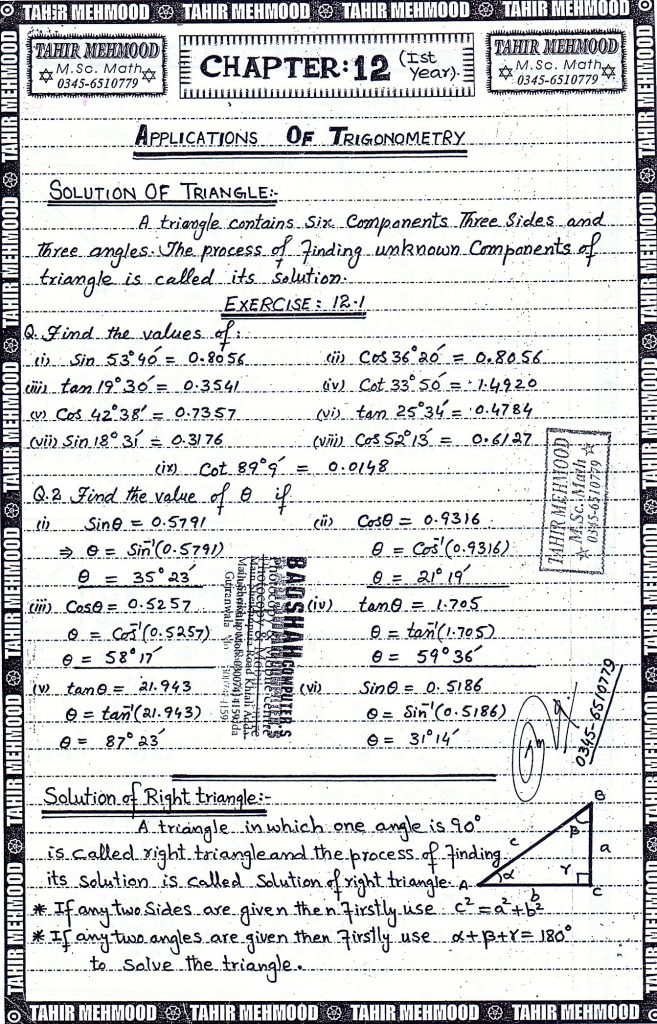 TAHIR MEHMOOD TAHIR MEHMOOD TAHIR MEHMOOD TAHIR MEHMOOD
TAHIR MEHMOOD
M.Sc. Math
0345-6510779
CHAPTER:12 (Ist Year).
TAHIR MEHMOOD
M.Sc. Math
0345-6510779
APPLICATIONS OF TRIGONOMETRY
SOLUTION OF TRIANGLE:-
A triangle contains Six Components Three Sides and
Three angles. The process of Finding unknown Components of
triangle is called its Solution.
EXERCISE: 12.1
Q. Find the values of:
(i) Sin 53°40′ = 0.8056 (ii) Cos 36°20′ = 0.8056
(iii) tan 19°30′ = 0.3541 (iv) Cot 33°50′ = 1.4920
(v) Cos 42°38′ = 0.7357 (vi) tan 25°34′ = 0.4784
(vii) Sin 18°31′ = 0.3176 (viii) Cos 52°13′ = 0.6127
(ix) Cot 89°9′ = 0.0148
Q.2 Find the value of θ if
(i) Sinθ = 0.5791 (ii) Cosθ = 0.9316
⇒ θ = Sin⁻¹(0.5791) θ = Cos⁻¹(0.9316)
θ = 35°23′ θ = 21°19′
(iii) Cosθ = 0.5257 (iv) tanθ = 1.705
θ = Cos⁻¹(0.5257) θ = tan⁻¹(1.705)
θ = 58°17′ θ = 59°36′
(v) tanθ = 21.943 (vi) Sinθ = 0.5186
θ = tan⁻¹(21.943) θ = Sin⁻¹(0.5186)
θ = 87°23′ θ = 31°14′
TAHIR MEHMOOD
M.Sc. Math
0345-6510779
BADSHAH COMPUTER,S
0345-6510779
Solution of Right triangle:-
A triangle in which one angle is 90°
is called right triangle and the process of Finding
its solution is called Solution of right triangle.
* If any two Sides are given then firstly use c² = a² + b²
* If any two angles are given then Firstly use α+β+γ = 180°
to Solve the triangle.
B
β
c
a
A
α
γ
b
C
TAHIR MEHMOOD TAHIR MEHMOOD TAHIR MEHMOOD TAHIR MEHMOOD